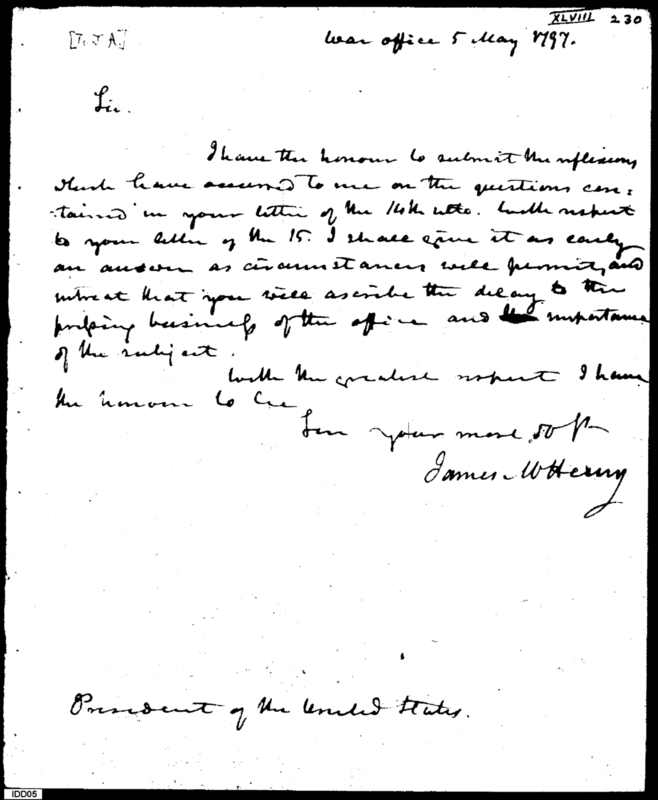 XLVIII 230
[To J A]
War office 5 May 1797.
Sir.
I have the honour to submit the reflexions
which have occurred to me on the questions con=
tained in your letter of the 14th ulto. With respect
to your letter of the 15. I shall give it as early
an answer as circumstances will permit, and
intreat that you will ascribe the delay to the
pressing business of the office and importance
of the subject.
With the greatest respect I have
the honour to be
Sir your most ob st
James McHenry
President of the United States.
IDD05